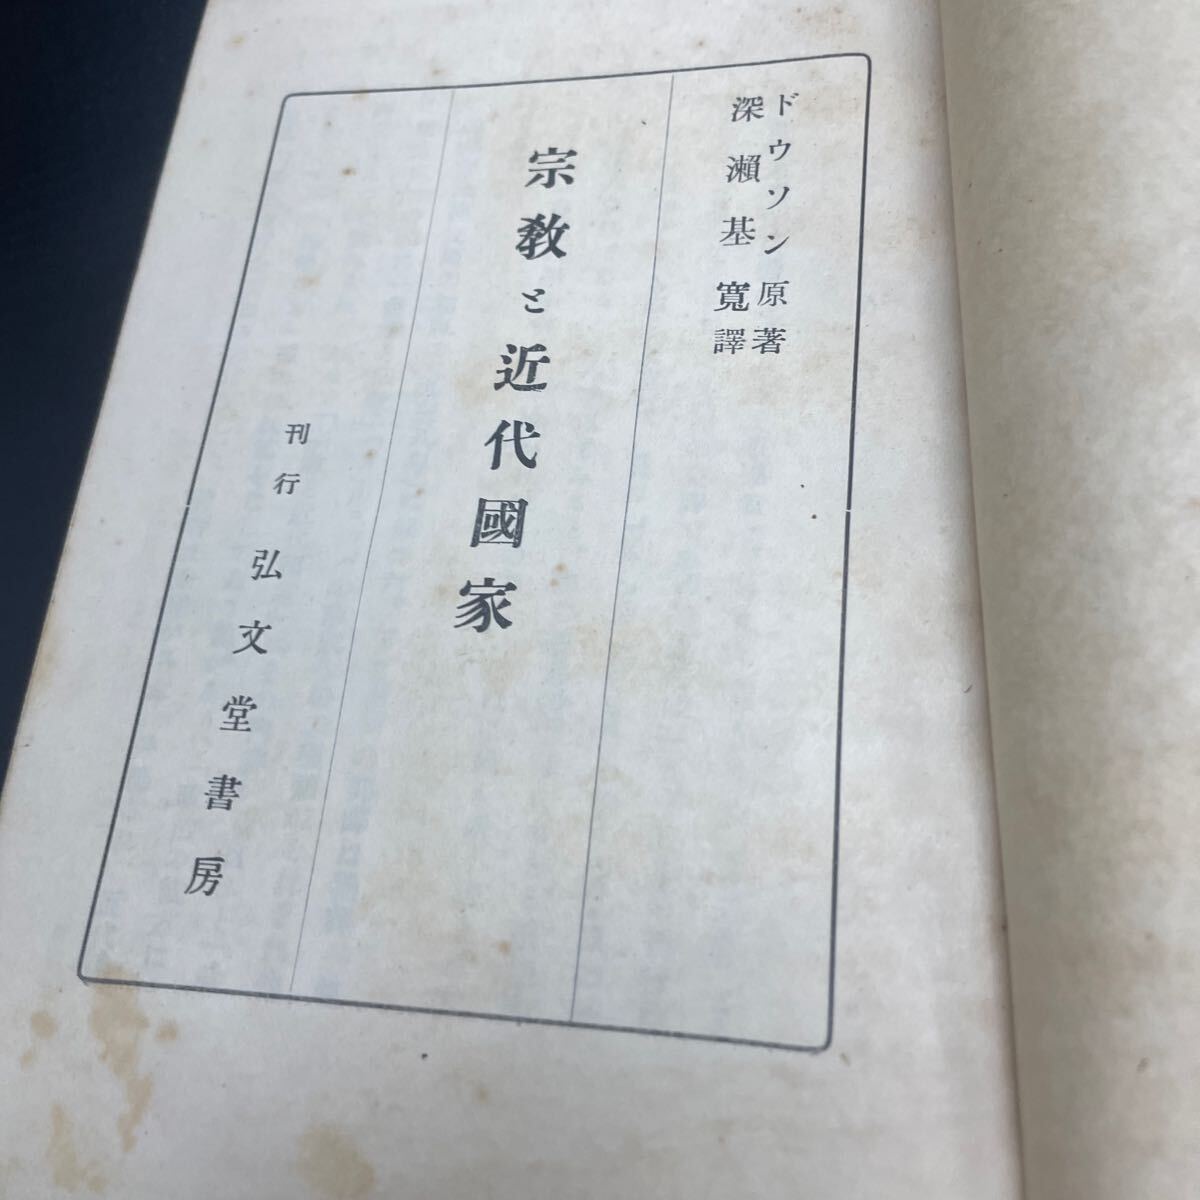 ドウソン原著
深瀬基寛譯
宗教と近代國家
刊行 弘文堂書房